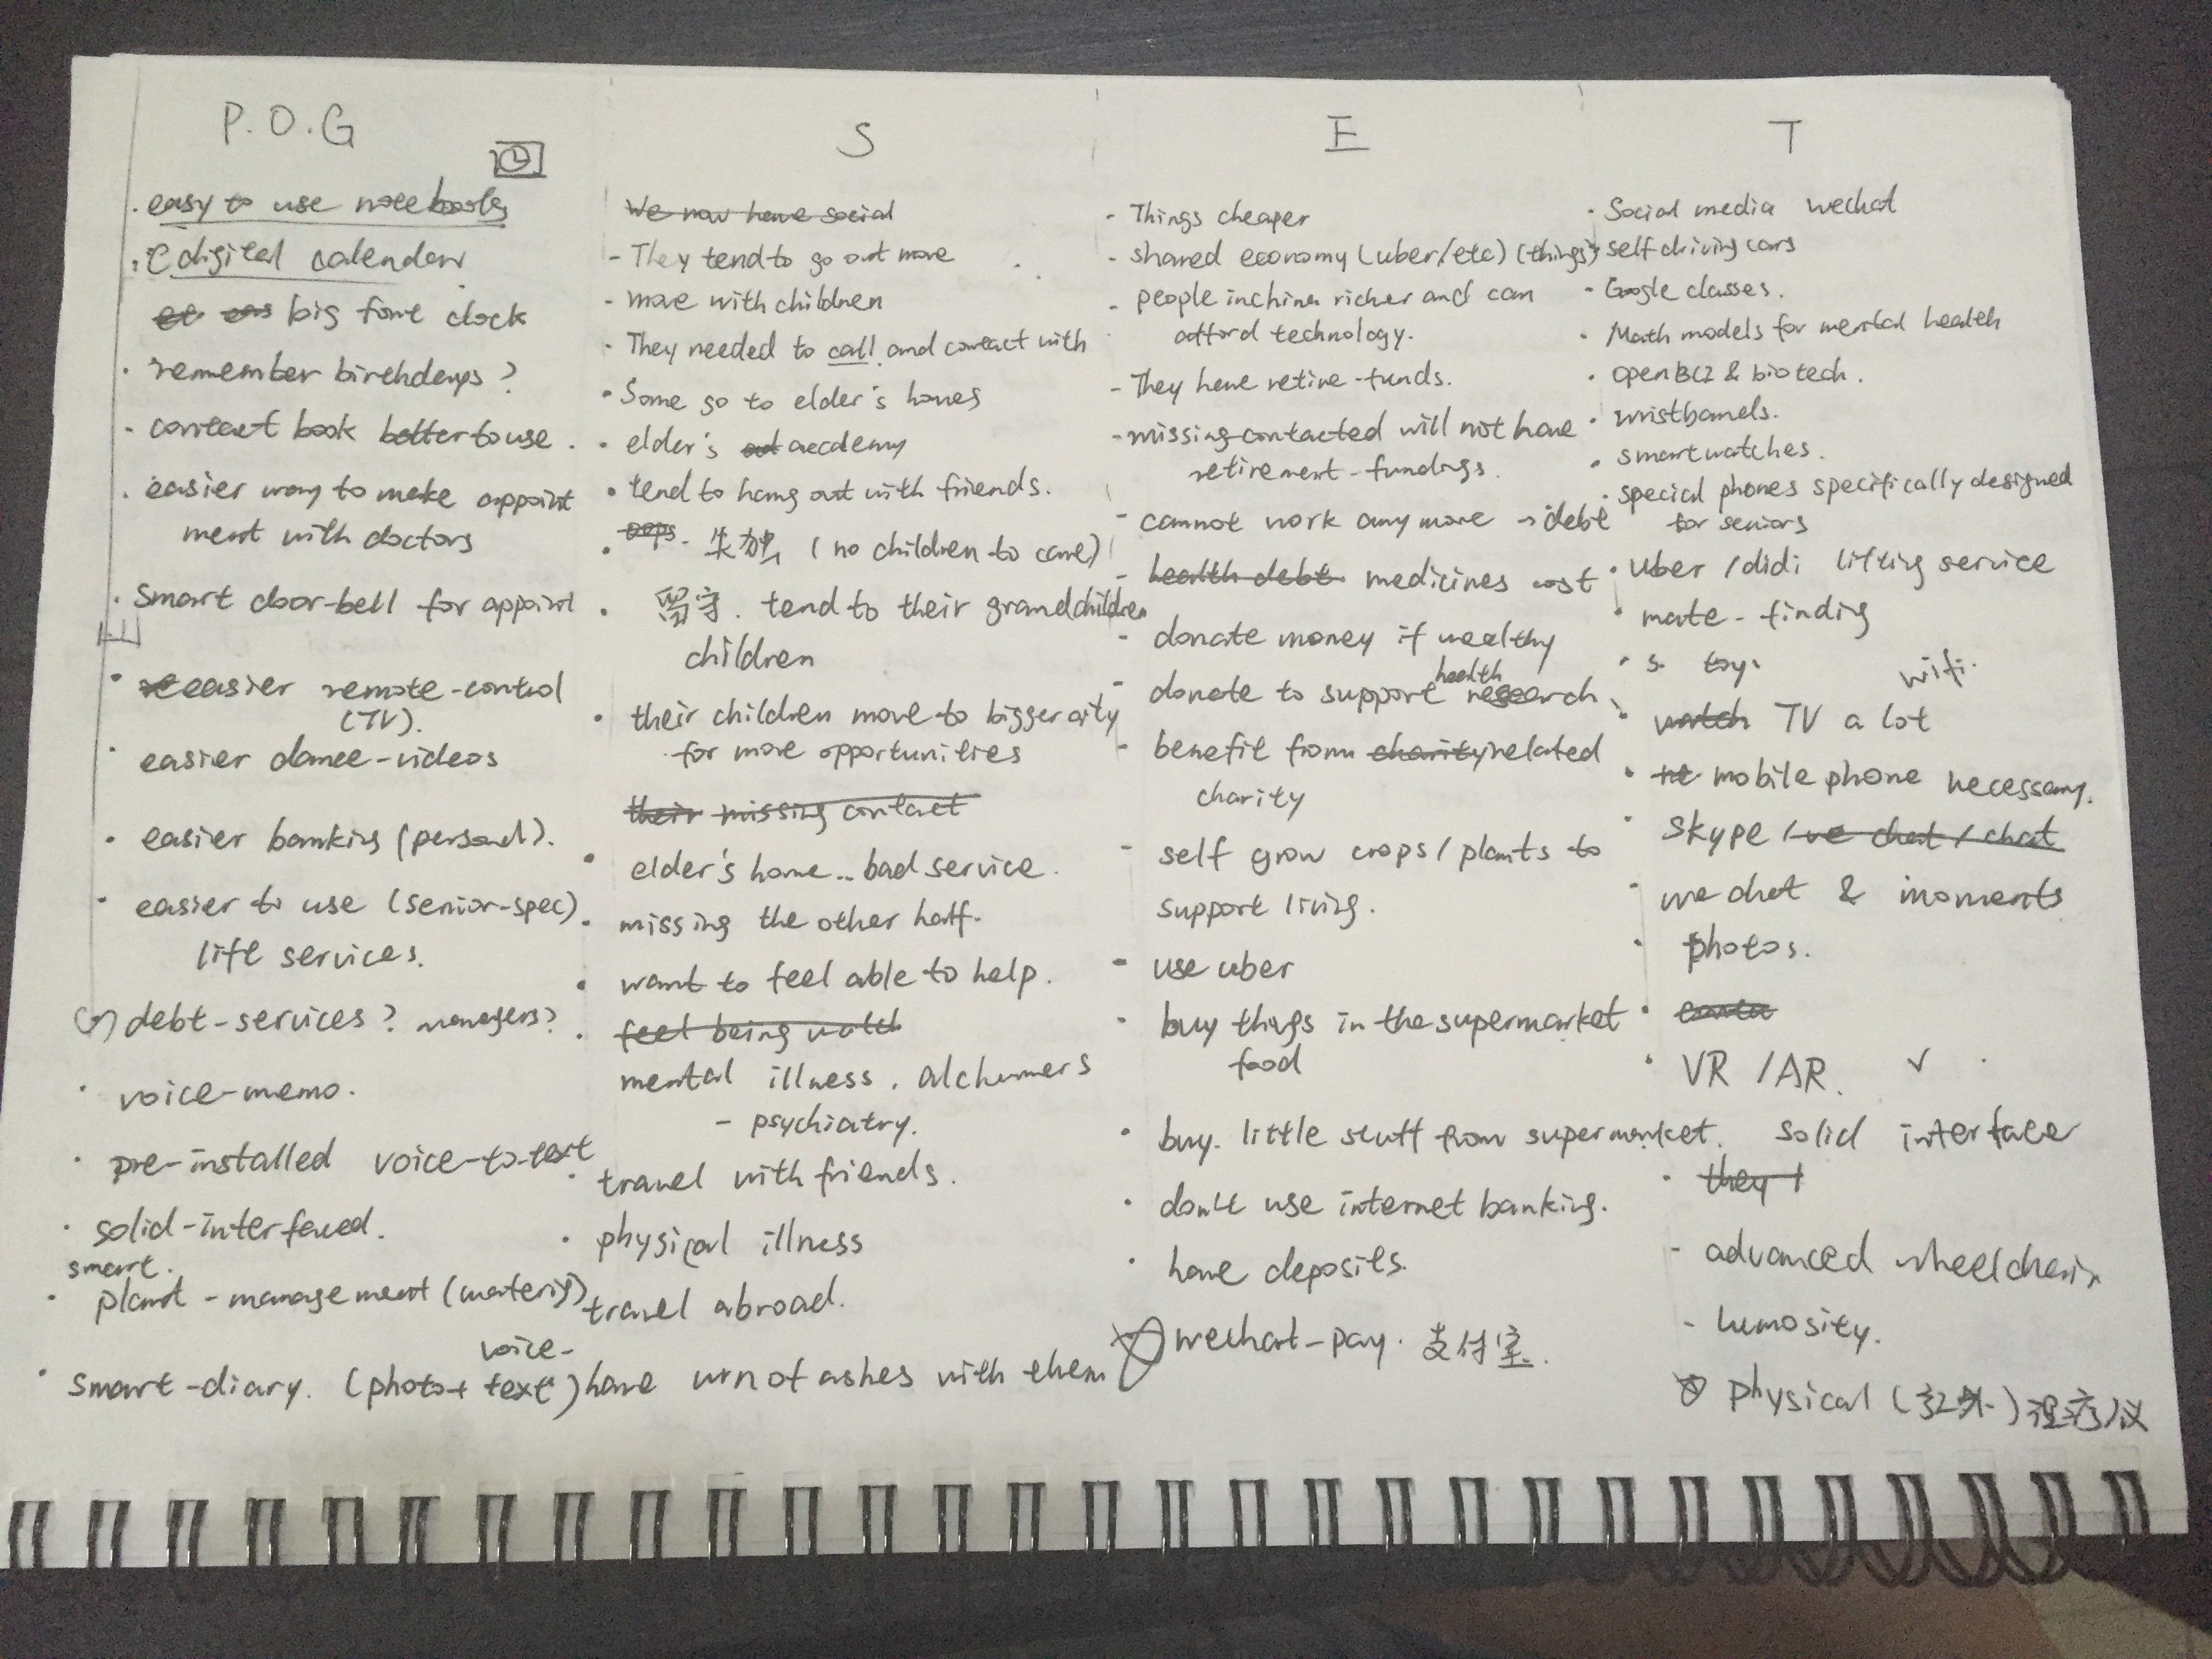 P.O.G
. easy to use notebooks
. digital calendar
big font clock
. remember birthdays?
- contact book better to use.
. easier way to make appoint
ment with doctors
. smart door-bell for appoint
. easier remote-control
(TV).
. easier dance-videos
. easier banking (personal).
. easier to use (senior-spec)
life services.
debt-services? managers?
. voice-memo.
. pre-installed voice-to-text
. solid-interfaced.
smart.
. plant-management (
voice-
. smart-diary. (photo+ text)
S
We now have social
- They tend to go out more
- move with children
- They needed to call and contact with
. Some go to elder's homes
. elder's out accdemy
. tend to hang out with friends.
. oops. (no children to care)
. 留守. tend to their grandchildren
children
. their children move to bigger city
for more opportunities
their missing contact
. elder's home.. bad service.
. missing the other half.
. want to feel able to help.
. feel being watch
mental illness. alzhemers
- psychiatry.
. travel with friends.
. physical illness
travel abroad.
have urn of ashes with them
E
- Things cheaper
- shared economy (uber/etc) (things)
- people in china richer and can
afford technology.
- They have retire-funds.
- missing-contacted will not have
retirement-fundings.
- cannot work any more → debt
- health debt. medicines cost
- donate money if wealthy
health
- donate to support research
- benefit from charity related
charity
- self grow crops/plants to
support living.
- use uber
- buy things in the supermarket
food
. buy. little stuff from supermarket.
. don't use internet banking.
. have deposits.
wechat-pay. 支付宝.
T
. Social media wechat
self driving cars
. Google classes.
. Math models for mental health
. open BCI & biotech.
. wristbands.
. smartwatches.
. special phones specifically designed
for seniors
. Uber/didi lifting service
. mate-finding
. s. toy.
wifi.
. watch TV a lot
. mobile phone necessary.
. skype / we chat / chat
- we chat & moments
. photos.
. VR / AR. ✓
solid interface
. they
- advanced wheelchair
- lumosity.
physical (红外) 理疗仪